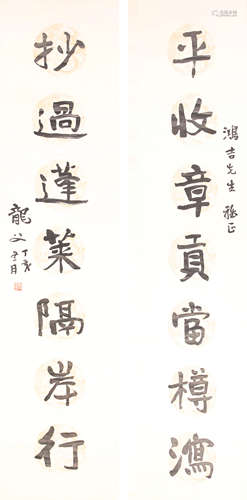 鴻吉先生雅正
平收章貢當樽瀉
抄過蓬萊隔岸行
龍父
丁亥